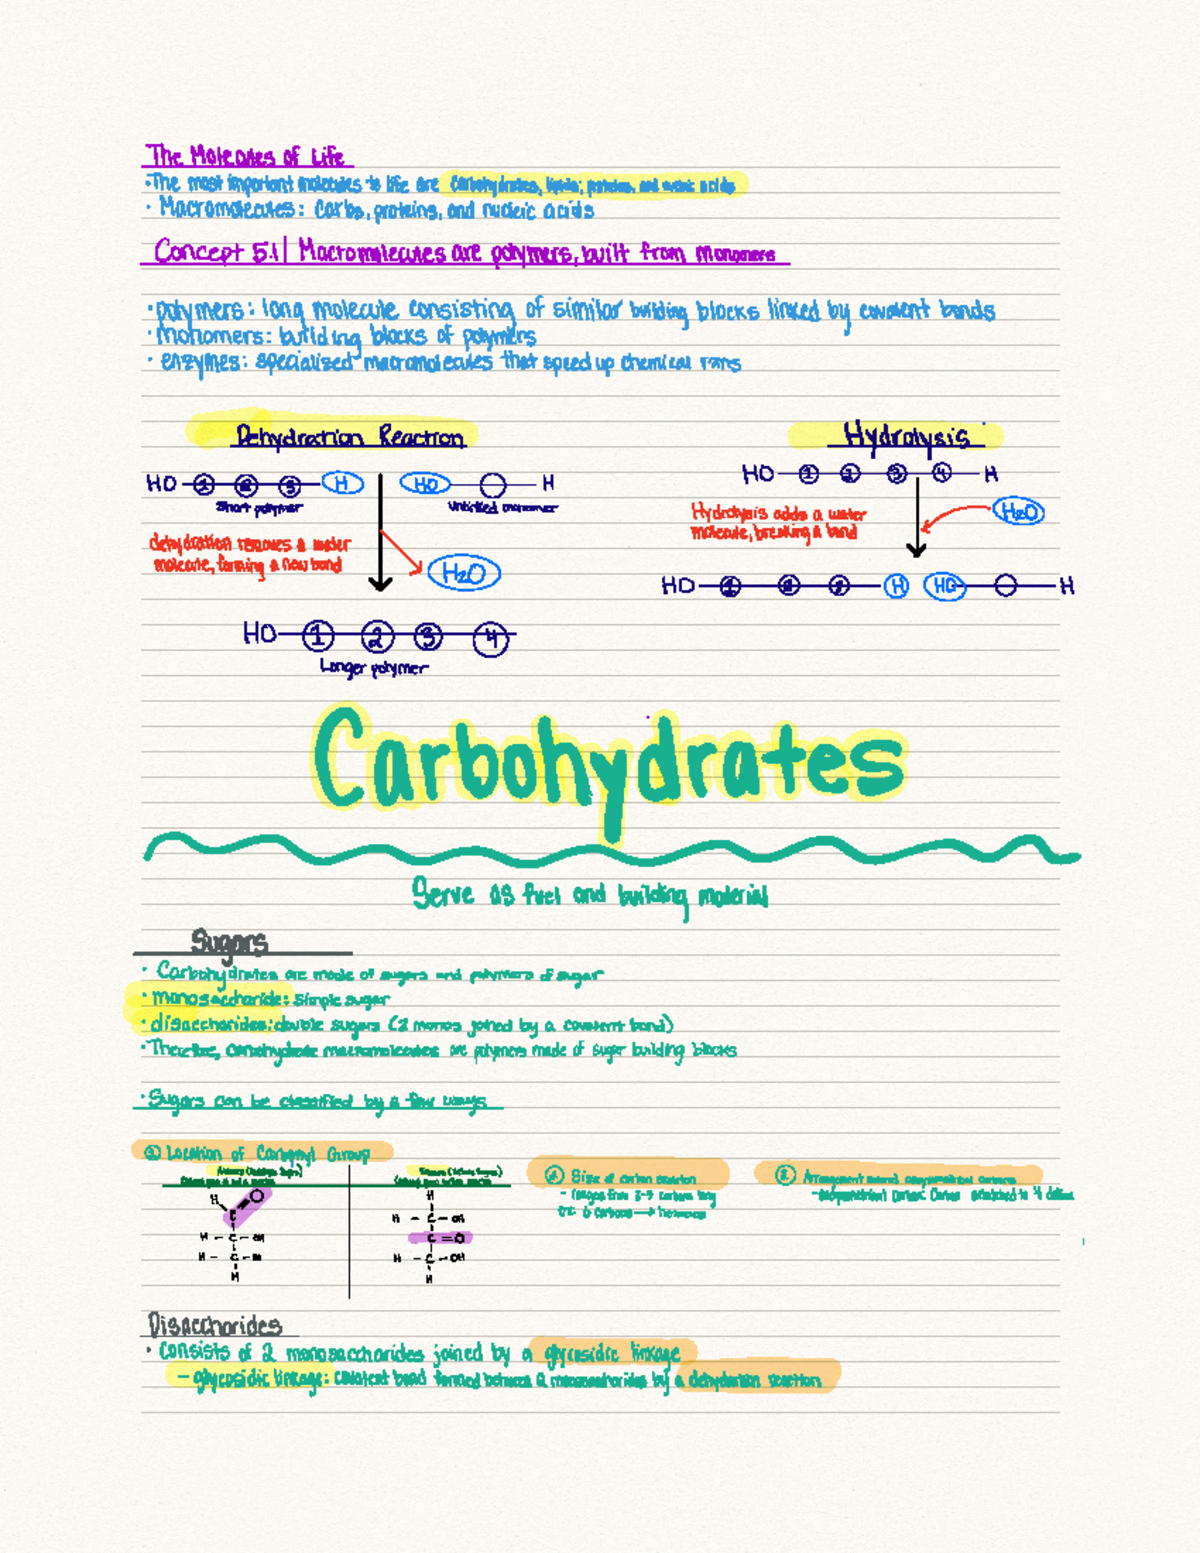 The Molecules of Life
·The most important molecules to life are carbohydrates, lipids, proteins, and nucleic acids
· Macromolecules: carbs, proteins, and nucleic acids
Concept 5.1| Macromolecules are polymers, built from monomers
·polymers: long molecule consisting of similar building blocks linked by covalent bonds
·monomers: building blocks of polymers
· enzymes: specialized macromolecules that speed up chemical rxns
Dehydration Reaction
HO 1 2 3 H HO H
Short polymer Unlinked monomer
dehydration removes a water
molecule, forming a new bond
H2O
HO 1 2 3 4
Longer polymer
Hydrolysis
HO 1 2 3 4 H
Hydrolysis adds a water
molecule, breaking a bond
H2O
HO 1 2 3 H HO H
Carbohydrates
Serve as fuel and building material
Sugars
· Carbohydrates are made of sugars and polymers of sugar
· monosaccharide: simple sugar
· disaccharides: double sugars (2 monos joined by a covalent bond)
·Therefore, carbohydrate macromolecules are polymers made of sugar building blocks
·Sugars can be classified by a few ways
① Location of Carbonyl Group
H O
C
H - C - OH
H - C - OH
H
H
H - C - OH
C = O
H - C - OH
H
② Size of carbon skeleton
- ranges from 3-7 carbons long
ex: 6 carbons → hexoses
Arrangement around asymmetrical carbons
-asymmetrical carbon: carbon attached to 4 different
Disaccharides
· consists of 2 monosaccharides joined by a glycosidic linkage
- glycosidic linkage: covalent bond formed between 2 monosaccharides by a dehydration reaction